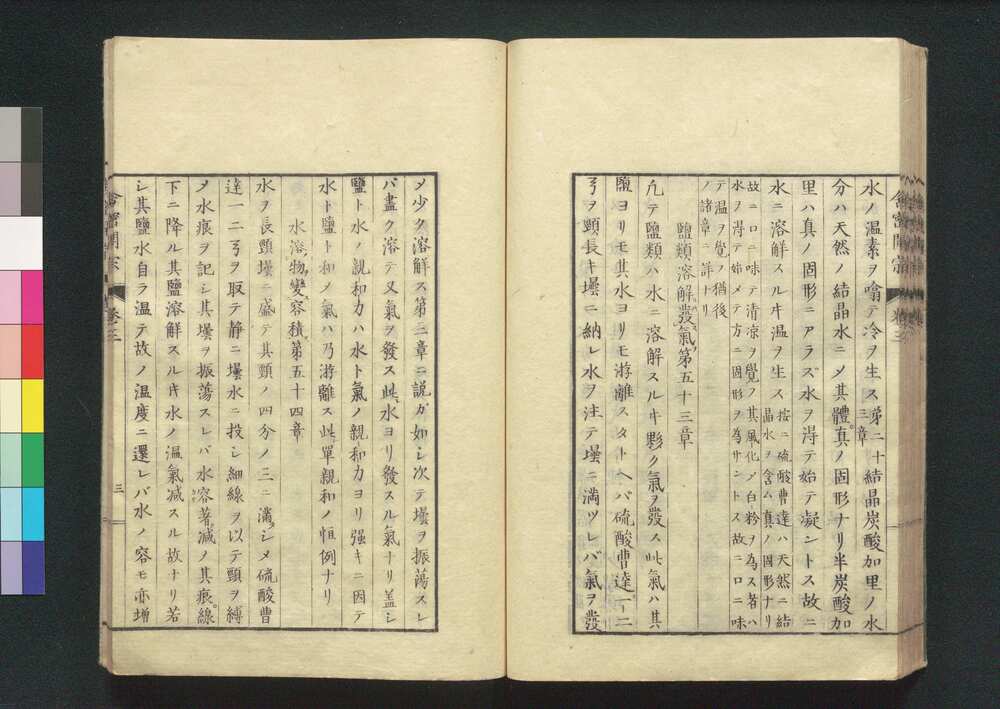 水ノ温素ヲ噏テ冷ヲ生ス第二十三章結晶炭酸加里ノ水
分ハ天然ノ結晶水ニメ其體真ノ固形ナリ半炭酸加
里ハ真ノ固形ニアラズ水ヲ淂テ始テ凝ントス故ニ
水ニ溶解スルキ温ヲ生ス按ニ硫酸曹達ハ天然ニ結
晶水ヲ含ム真ノ固形ナリ
故ニ口ニ味テ清凉ヲ覺フ其風化ノ白粉ヲ為ス者ハ
水ヲ淂テ始メテ方ニ固形ヲ為サントス故ニ口ニ味
テ温ヲ覺フ猶後
ノ諸章ニ詳ナリ
鹽類溶解發氣第五十三章
凢テ鹽類ハ水ニ溶解スルキ夥ク氣ヲ發ス此氣ハ其
鹽ヨリモ其水ヨリモ游離スタトヘバ硫酸曹達一二
弓ヲ頸長キ壜ニ納レ水ヲ注テ壜ニ満ツレバ氣ヲ發
メ少ク溶解ス第二章ニ説ガ如シ次テ壜ヲ振蕩スレ
バ盡ク溶テ又氣ヲ發ス此水ヨリ發スル氣ナリ蓋シ
鹽ト水ノ親和力ハ水ト氣ノ親和力ヨリ强キニ因テ
水ト鹽ト和メ氣ハ乃游離ス此單親和ノ恒例ナリ
水溶物變容積第五十四章
水ヲ長頸壜ニ盛テ其頸ノ四分ノ三ニ滿シメ硫酸曹
達一二弓ヲ取テ静ニ壜水ニ投シ細線ヲ以テ頸ヲ縛
メ水痕ヲ記シ其壜ヲ振蕩スレバ水容著減ノ其痕線
下ニ降ル其鹽溶解スルキ水ノ温氣減スル故ナリ若
シ其鹽水自ラ温テ故ノ温度ニ還レバ水ノ容モ亦增
舎密開宗
卷三
三